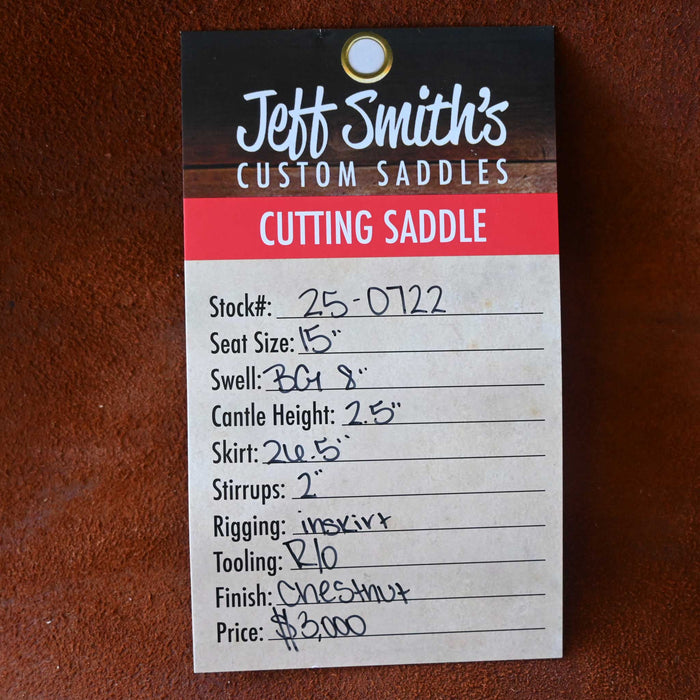 Jeff Smith's
CUSTOM SADDLES
CUTTING SADDLE
Stock#: 25-0722
Seat Size: 15"
Swell: BCH 8"
Cantle Height: 2.5"
Skirt: 26.5"
Stirrups: 2"
Rigging: inskirt
Tooling: R/O
Finish: Chestnut
Price: $3,000